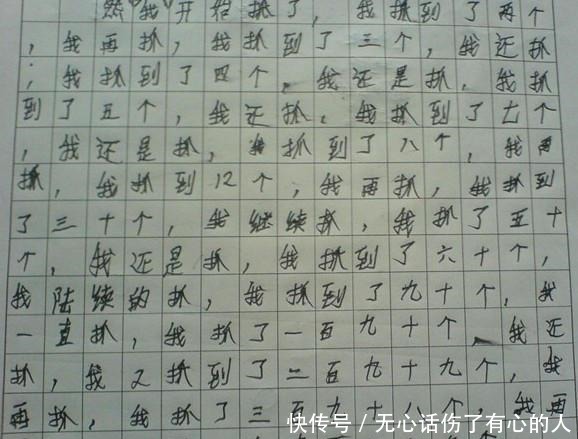 然我开始抓了，我抓到了两个
，我再抓，我抓到了三个，我还抓
，我抓到了四个，我还是抓，我抓
到了五个，我还抓，我抓到了七个
，我还是抓，我抓到了八个，我再
抓，我抓到12个，我再抓，我抓到
了三十个，我继续抓，我抓了五十
个，我还是抓，我抓到了六十个，
我陆续的抓，我抓到了九十个，我
一直抓，我抓了一百九十个，我还
抓，我又抓到了二百九十九个，我
再抓，我抓了三百九十八个，我再
快传号 / 无心话伤了有心的人